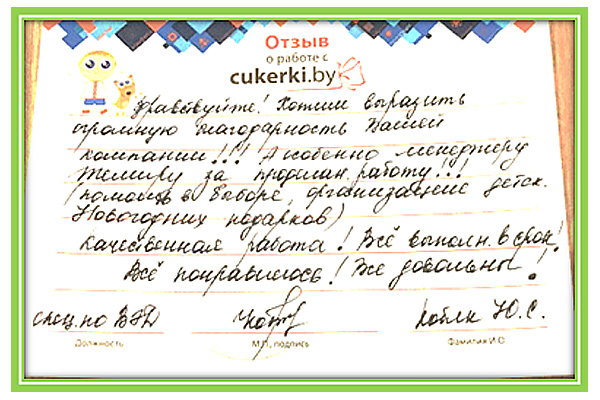 Отзыв
о работе с
cukerki.by
Здравствуйте! Хотим выразить
огромную благодарность Вашей
компании!!! А особенно менеджеру
за проделан. работу!!!
(помощь в выборе, организацию детск.
Новогодних подарков)
Качественная работа! Всё выполн. в срок!
Всё понравилось! Все довольны!
спец. по
Ю.С.
Должность М.П., подпись Фамилия И.О.